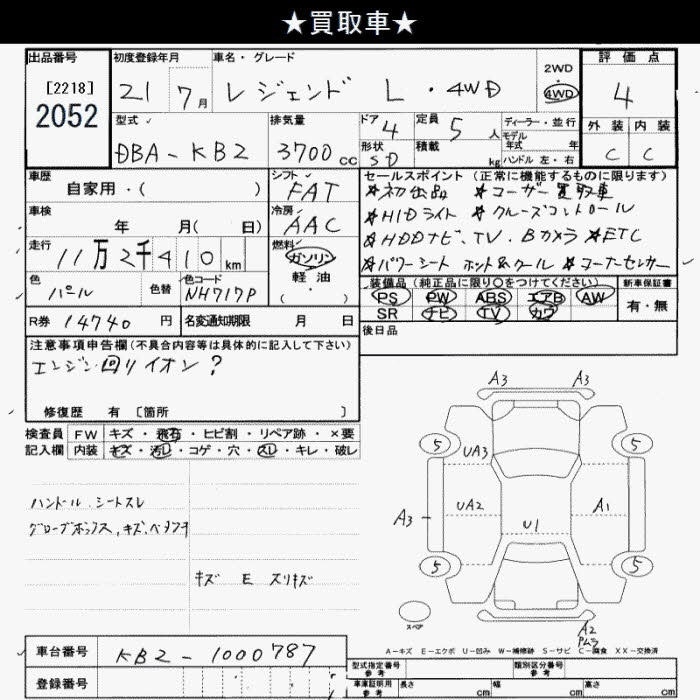 ★買取車★
出品番号 初度登録年月 車名・グレード 評価点
[2218] 2WD
2052 21 7月 レジェンド L ・4WD 4WD 4
型式 排気量 ドア 4 定員 5人 ディーラー・並行 外装 内装
モデル年式 年
DBA-KB2 3700cc 形状 SD 積載 kg ハンドル 左・右 C C
車歴 シフト セールスポイント (正常に機能するものに限ります)
自家用・( ) FAT ★初出品 ★ユーザー買取車
車検 冷房 ★HIDライト ★クルーズコントロール
年 月( 日) AAC ★HDDナビ、TV、Bカメラ ★ETC
走行 燃料 ★パワーシート ホット&クール ★コーナーセンサー
11万2千410km ガソリン
軽油
色 色替 色コード ・( ) 装備品 (純正品に限り○をつけてください) 新車保証書
パール NH717P PS PW ABS エアB AW 有・無
SR ナビ TV カワ
R券 14740円 名変通知期限 月 日 後日品
注意事項申告欄 (不具合内容等は具体的に記入して下さい)
エンジン回りイオン?
修復歴 有 [箇所 ]
検査員 FW キズ・飛石・ヒビ割・リペア跡・×要
記入欄 内装 キズ・汚レ・コゲ・穴・スレ・キレ・破レ
A3 A3
5 5
UA3
ハンドル、シートスレ
UA2 A1
A3
グローブボックス、キズ、ベタツキ
U1
5 5
キズ E スリキズ
スペア
A2
A-キズ E-エクボ U-凹み W-補修跡 S-サビ C-腐食 XX-交換済
車台番号 KB2-1000787
型式指定番号 参考 類別区分番号 参考
登録番号 車庫証明用 参考 長さ cm 幅 cm 高さ cm